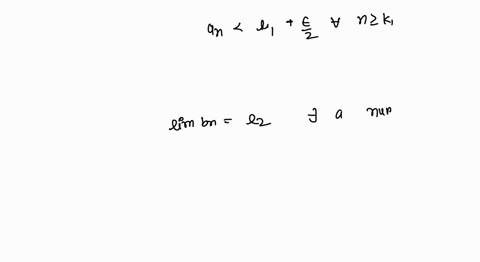 an < l1 + ε/2 ∀ n ≥ k1
lim bn = l2 ∃ a num